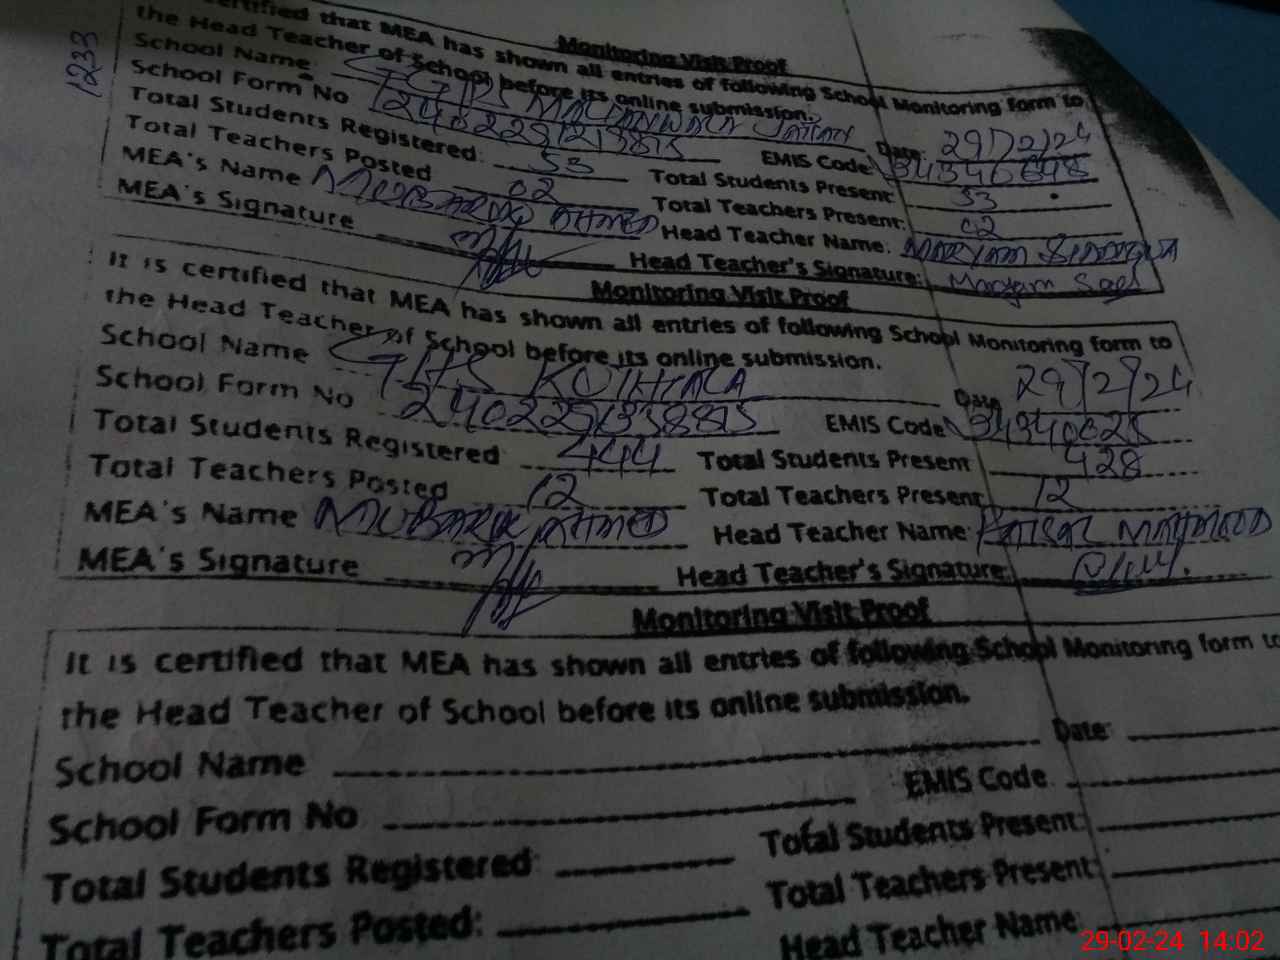 1233
Monitoring Visit Proof
certified that MEA has shown all entries of following School Monitoring form to
the Head Teacher of School before its online submission.
School Name: GGPS JATTAN Date: 29/2/24
School Form No 2402291213815 EMIS Code: 34340648
Total Students Registered: 53 Total Students Present: 53
Total Teachers Posted 02 Total Teachers Present: 02
MEA's Name MUBARIK AHMED Head Teacher Name: MARYAM
MEA's Signature Head Teacher's Signature: Maryam
Monitoring Visit Proof
It is certified that MEA has shown all entries of following School Monitoring form to
the Head Teacher of School before its online submission.
School Name GHS KOTHALA Date 29/2/24
School Form No 2402291338815 EMIS Code 34340028
Total Students Registered 444 Total Students Present 428
Total Teachers Posted 12 Total Teachers Present 12
MEA's Name MUBARIK AHMED Head Teacher Name: KAISAR MAHMOOD
MEA's Signature Head Teacher's Signature:
Monitoring Visit Proof
It is certified that MEA has shown all entries of following School Monitoring form to
the Head Teacher of School before its online submission.
School Name Date:
School Form No EMIS Code
Total Students Registered: Total Students Present:
Total Teachers Posted: Total Teachers Present:
Head Teacher Name:
29-02-24 14:02